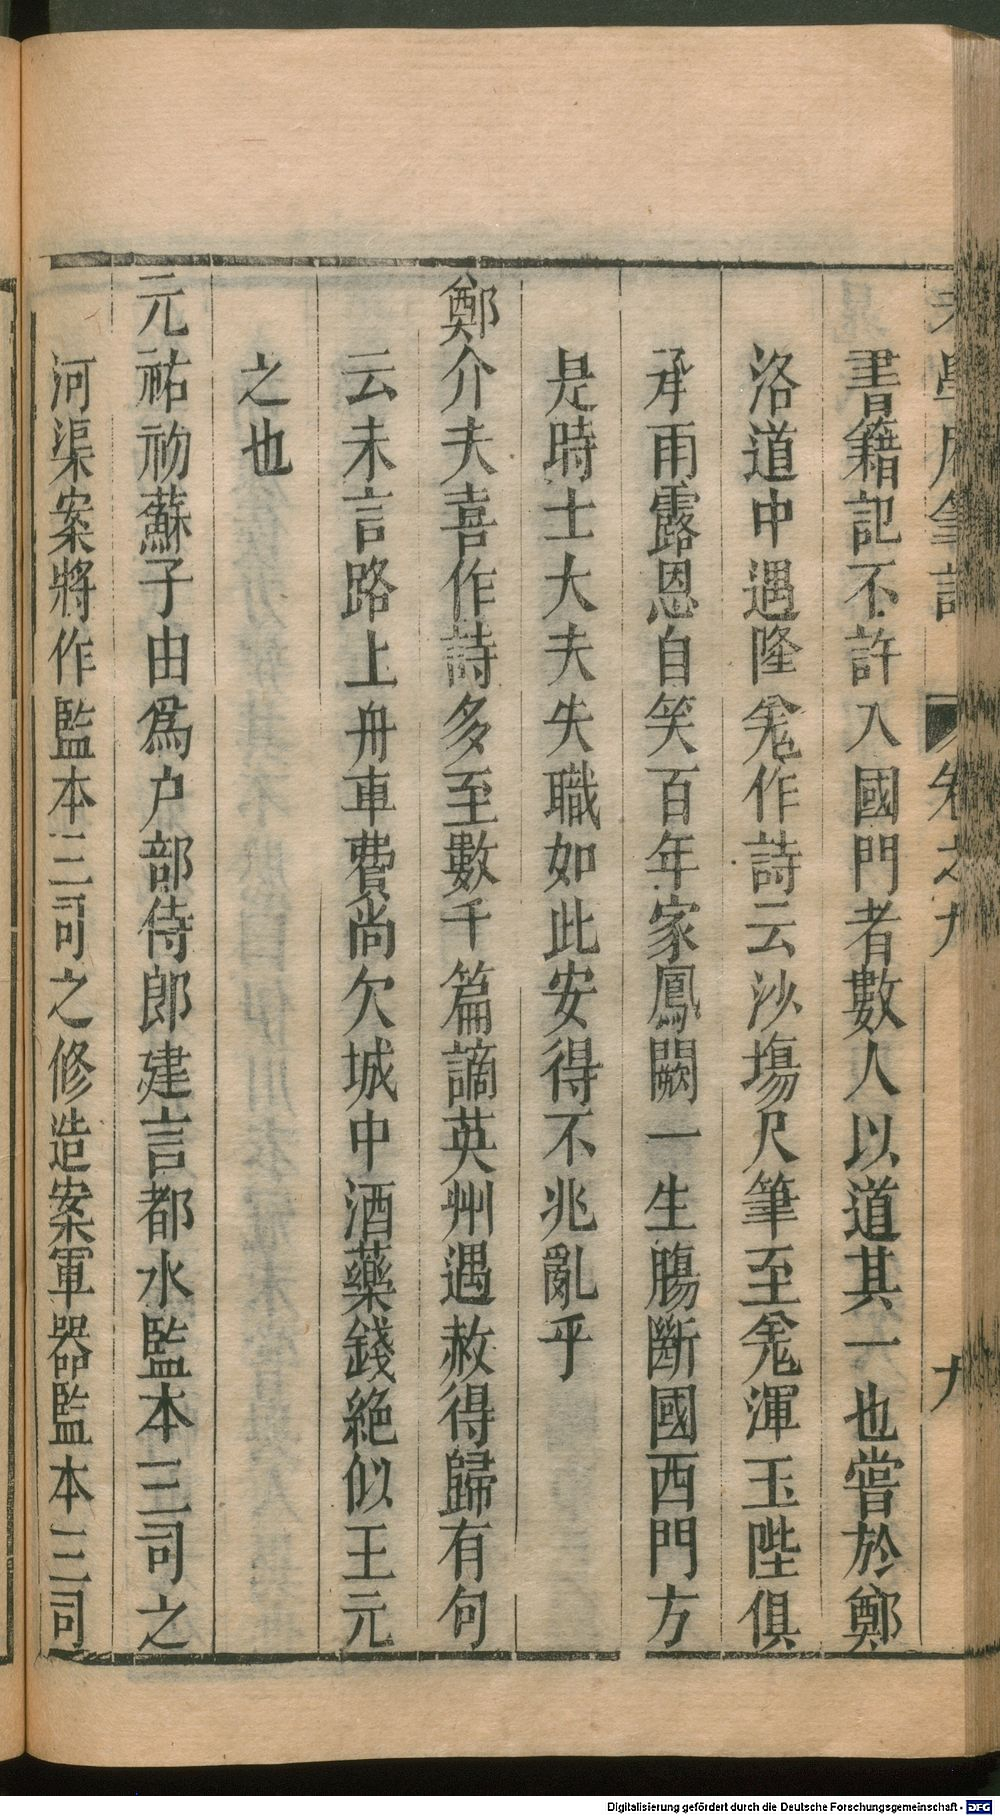 老學庵筆記 卷之九 九
書籍記不許入國門者數人以道其一也嘗於鄭
洛道中遇降羌作詩云沙塲尺箠至羌渾玉陛俱
承雨露恩自笑百年家鳳闕一生腸斷國西門方
是時士大夫失職如此安得不兆亂乎
鄭介夫喜作詩多至數千篇謫英州遇赦得歸有句
云未言路上舟車費尚欠城中酒藥錢絕似王元
之也
元祐初蘇子由爲户部侍郎建言都水監本三司之
河渠案將作監本三司之修造案軍器監本三司
Digitalisierung gefördert durch die Deutsche Forschungsgemeinschaft - DFG